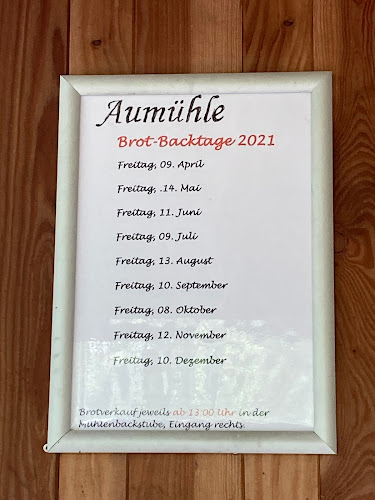 Aumühle
Brot-Backtage 2021
Freitag, 09. April
Freitag, .14. Mai
Freitag, 11. Juni
Freitag, 09. Juli
Freitag, 13. August
Freitag, 10. September
Freitag, 08. Oktober
Freitag, 12. November
Freitag, 10. Dezember
Brotverkauf jeweils ab 13:00 Uhr in der
Mühlenbackstube, Eingang rechts.